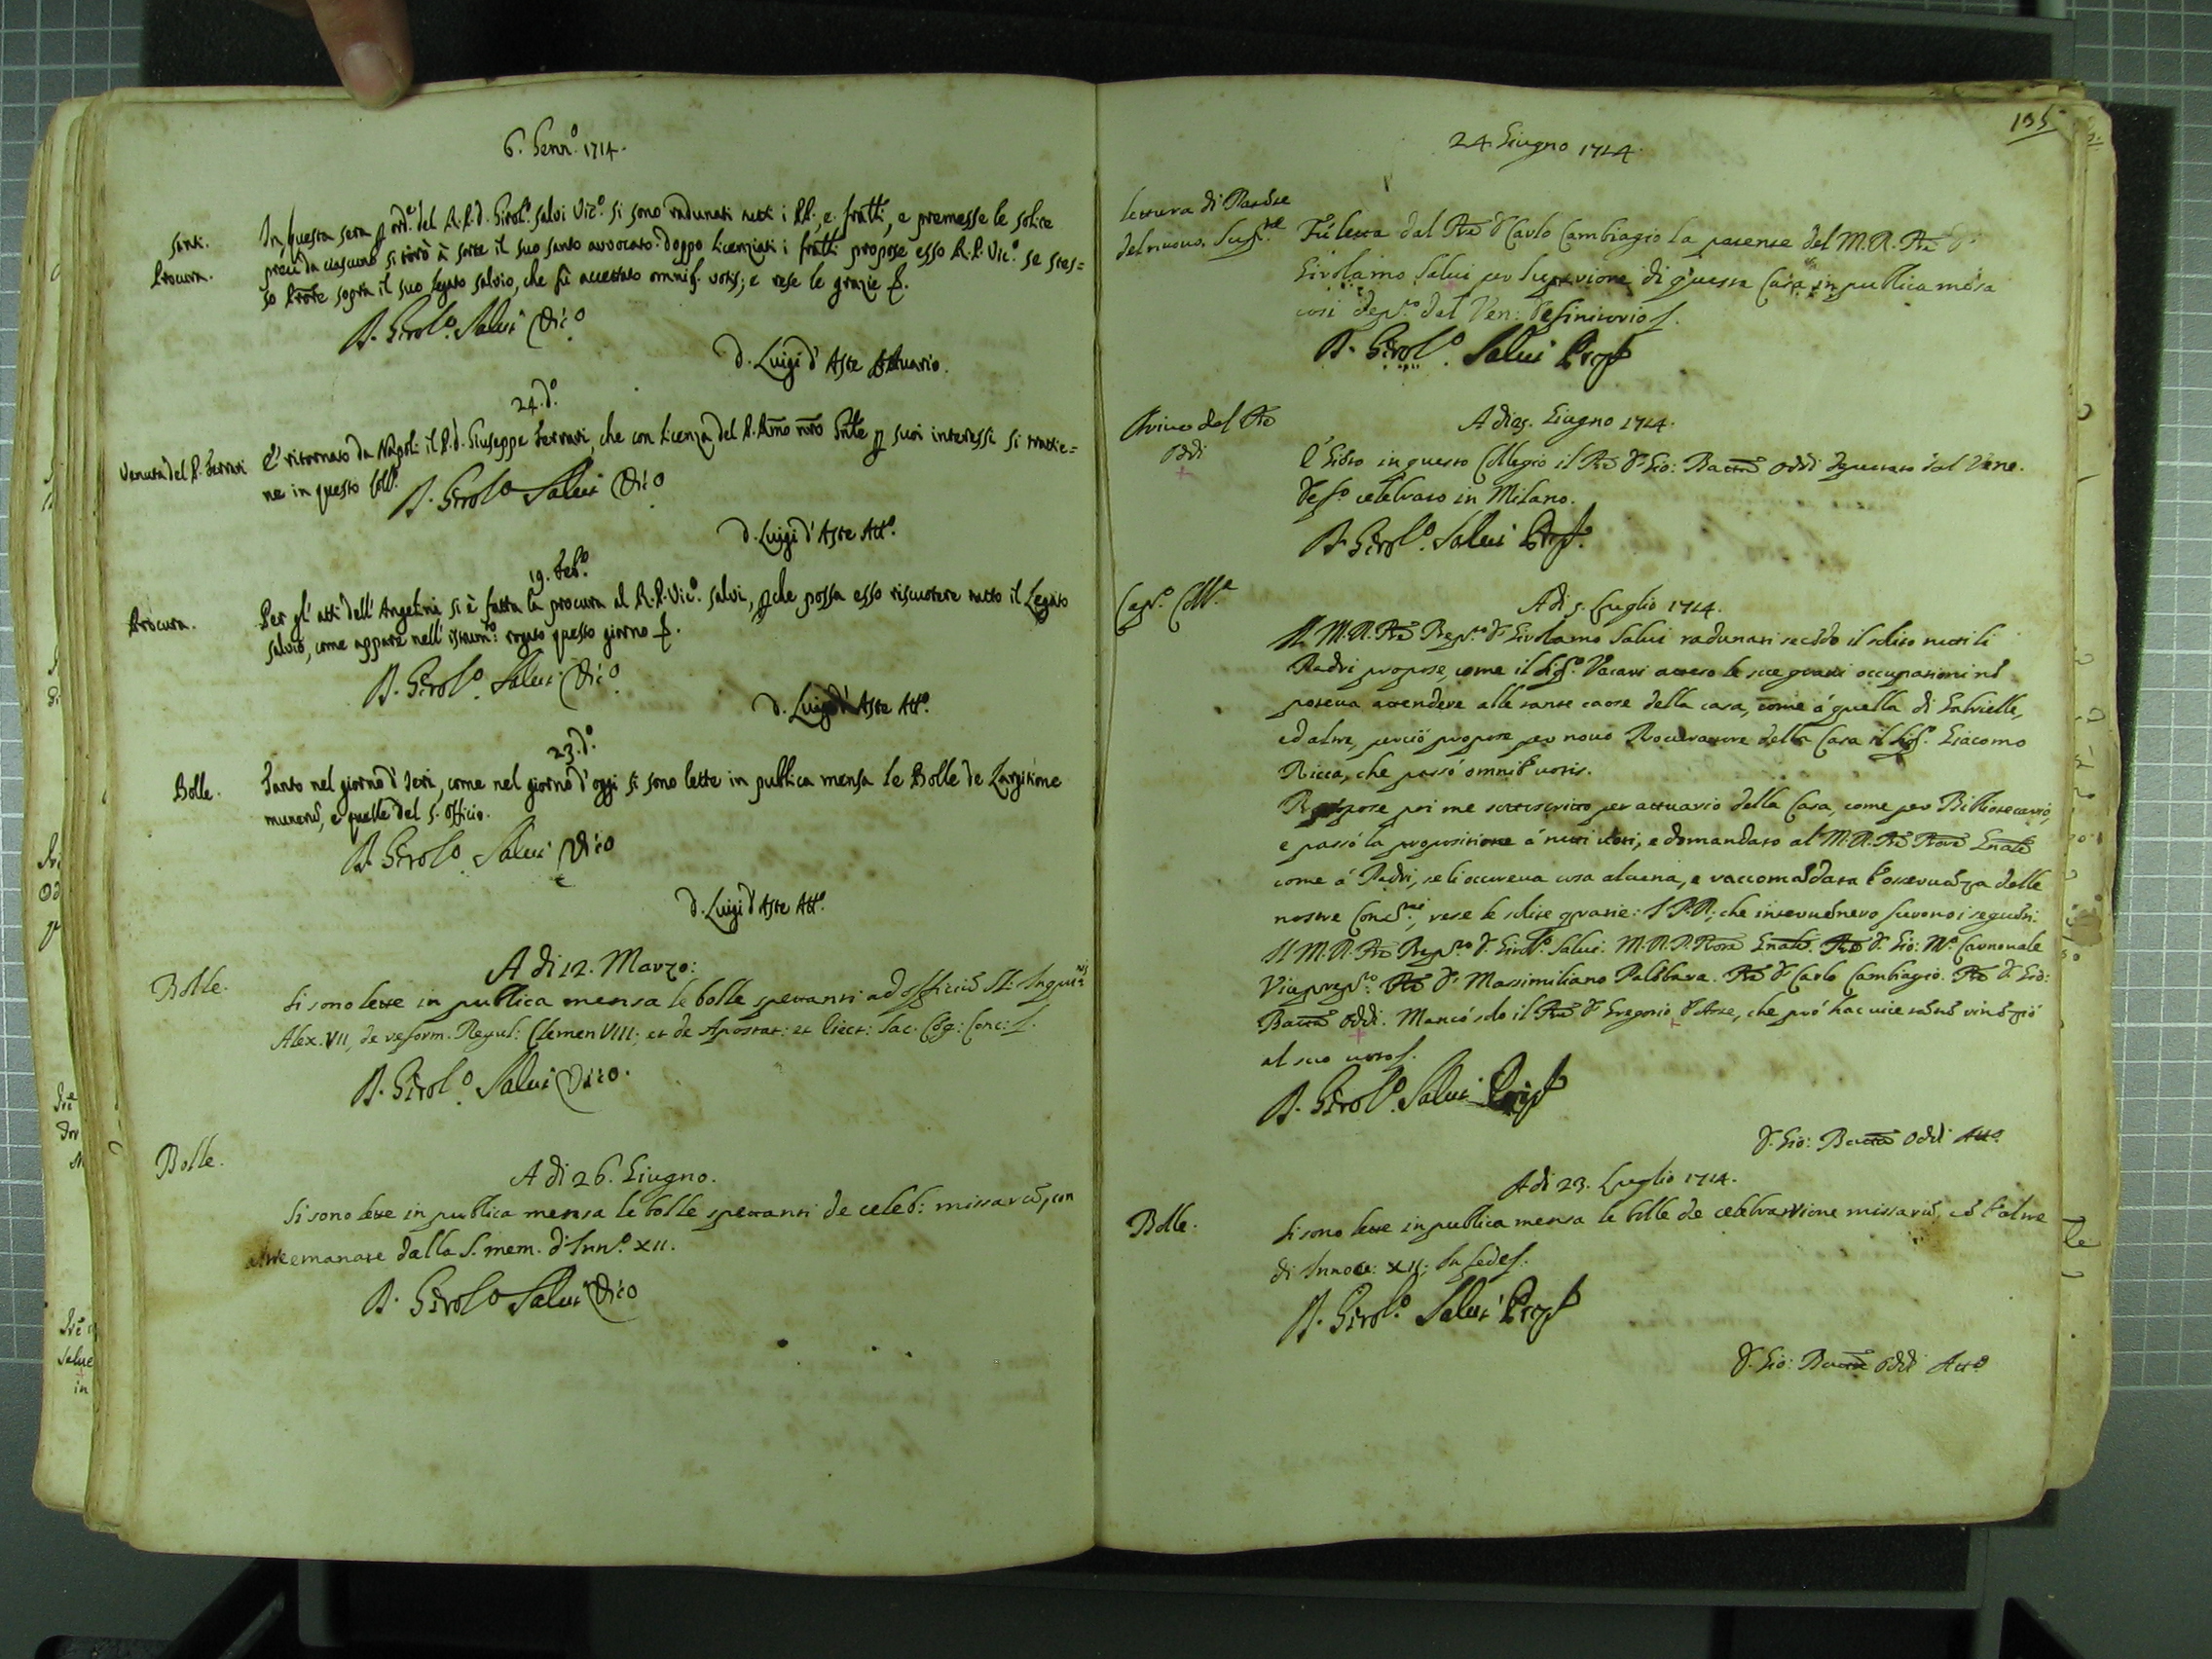 6. Genn.º 1714.
Santi.
Procura.
In questa sera p ord.e del R.P.D. Girol.º Salvi Vic.º si sono radunati tutti i PP., e fratti, e premesse le solite
preci da ciascuno si tirò à sorte il suo santo avvocato. Doppo licenziati i fratti propose esso R.P. Vic.º se stes=
so Prore sopra il suo legato salvio, che fù accettato omnib. votis; e rese le grazie
D. Girol.º Salvi Vic.º
D. Luigi d'Aste Attuario.
24. d.º
Venuta del P. Ferrari
E' ritornato da Napoli il P.D. Giuseppe Ferrari, che con licenza del P. Rmo nro Gnle p suoi interessi si trattie=
ne in questo Coll.º
D. Girolº Salvi Vicº
D. Luigi d'Aste Att.º
19. Feb.º
Procura.
Per gl'atti dell'Angelini si è fatta la procura al R.P. Vic.º Salvi, pche possa esso riscuotere tutto il Legato
salvio, come appare nell'istrum.to rogato questo giorno
D. Girolº Salvi Vicº
D. Luigi d'Aste Att.º
23. d.º
Bolle.
Tanto nel giorno d'Ieri, come nel giorno d'oggi si sono lette in publica mensa le Bolle de Largitione
munerũ, e quelle del S. Officio.
D. Girolº Salvi Vicº
D. Luigi d'Aste Att.º
A di 12. Marzo:
Bolle.
Si sono lette in publica mensa le bolle spettanti ad officiũ SS: Inquis.nis
Alex. VII, de reform. Regul: Clemen VIII; et de Apostat: et Eiect: Sac. Cõg: Conc:
D. Girol.º Salvi Vicº.
Bolle.
A di 26. Giugno.
Si sono lette in publica mensa le bolle spettanti de celeb: missarũ, con
altre emanate dalla S. mem. d'Inn.º XII.
D. Girolº Salvi Vicº
135
24. Giugno 1714.
lettura di Patente
del nuovo Sup.re
Fù letta dal Pre D. Carlo Cambiagio la patente del M.R. Pre D.
Girolamo Salvi per Superiore di questa Casa in publica mẽsa
così dep.º dal Ven: Definitorio
D. Girol.º Salvi Prep.
Arivo del Pre
Oddi
A di 25. Giugno 1714.
E' Gito in questo Collegio il Pre D. Gio: Battã Oddi deputato dal Vene.
Def.º celebrato in Milano.
D. Girol.º Salvi Prep.
Cap.º Coll.e
A di 5. Luglio 1714.
Il M.R. Pre Prep.to D. Girolamo Salvi radunati secõdo il solito tutti li
Padri propose, come il Sig.r Vacari atteso le sue gravi occupationi nõ
poteva attendere alle tante cause della casa, come á quella di Gabrielle,
ed altre, perciò propose per novo Procuratore della Casa il Sig.r Giacomo
Ricca, che passò omnib' votis.
Propose poi me sottoscritto per attuario della Casa, come per Bibliotecario,
e passò la propositione á tutti voti, e domandato al M.R. Pre Prore Gnale
come á Padri, se li occureva cosa alcuna, e raccomãdata l'osservãza delle
nostre Const.ni, rese le solite gratie: I P.P. che intervenẽro furono i seguẽti.
Il M.R. Pre Prep.to D. Girol.º Salvi. M.R.P. Prore Gnale. Pre D. Gio: M.a Carnovale
Viceprep.to Pre D. Massimiliano Palõbara. Pre D. Carlo Cambiagio. Pre D. Gio:
Battã Oddi. Mancò solo il Pre D. Gregorio d'Aste, che però hac vice tãtũ rinũziò
al suo voto
D. Girol.º Salvi Prep.
D. Gio: Battã Oddi Att.º
A di 23. Luglio 1714.
Bolle:
Si sono lette in publica mensa le bolle de celebrattione missarũ, cõ l'altre
di Innoce: XII; In fede
D. Girol.º Salvi Prep.
D. Gio: Battã Oddi Att.º